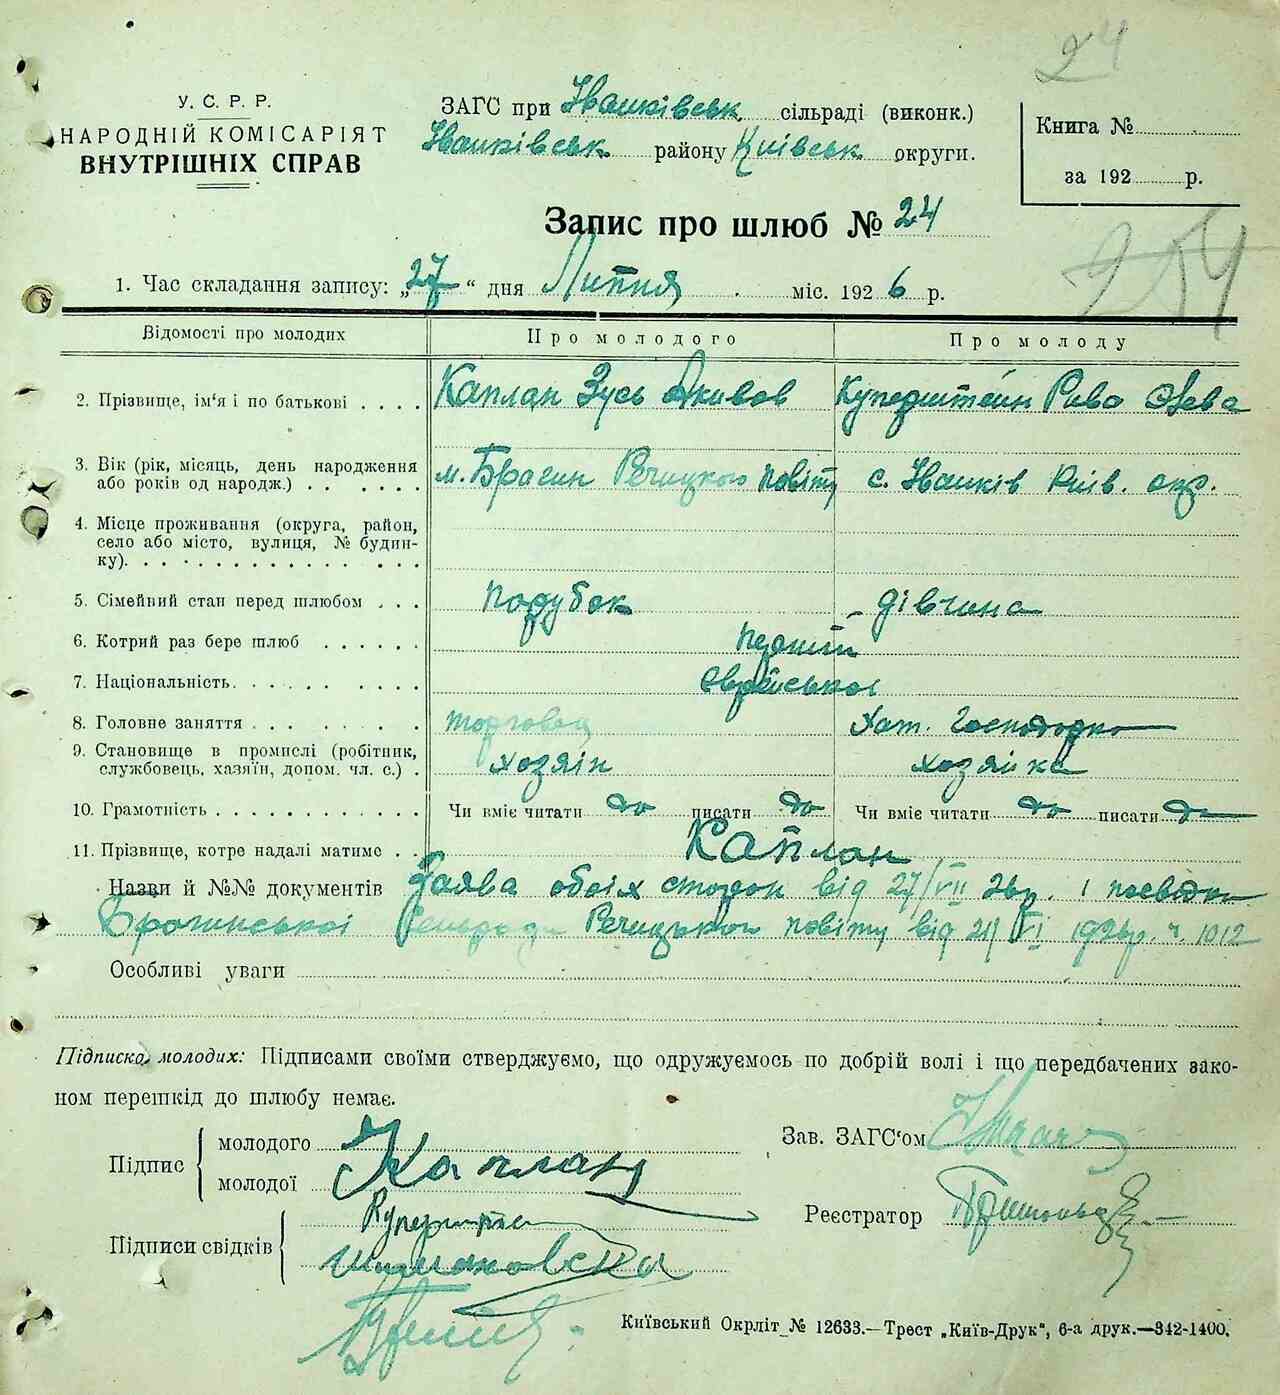 24
У. С. Р. Р.
НАРОДНІЙ КОМІСАРІЯТ
ВНУТРІШНІХ СПРАВ
ЗАГС при Іванківськ. сільраді (виконк.)
Іванківськ району Київськ округи.
Книга №
за 192 р.
Запис про шлюб № 24
254
1. Час складання запису: „27“ дня Липня міс. 1926 р.
Відомості про молодих Про молодого Про молоду
2. Прізвище, ім'я і по батькові Каплан Зусь Акивов Куперштейн Рива
3. Вік (рік, місяць, день народження м. Брагин Речицкого повіту с. Іванків Київ. окр.
або років од народж.)
4. Місце проживання (округа, район,
село або місто, вулиця, № будин-
ку).
5. Сімейний стан перед шлюбом парубок дівчина
6. Котрий раз бере шлюб перший
7. Національність єврейської
8. Головне заняття торговец Хат. Господарка
9. Становище в промислі (робітник,
службовець, хазяїн, допом. чл. с.) хозяїн хозяйка
10. Грамотність Чи вміє читати да писати да Чи вміє читати да писати да
11. Прізвище, котре надалі матиме Каплан
Назви й №№ документів Заява обоїх сторон від 27/VII 26р. і посвідка
Речицького повіту від 21/VI 1926р. ч. 1012
Особливі уваги
Підписка молодих: Підписами своїми стверджуємо, що одружуємось по добрій волі і що передбачених зако-
ном перешкід до шлюбу немає.
Підпис молодого
молодої Каплан
Зав. ЗАГС'ом
Реєстратор
Підписи свідків
Шимановска
Київський Окрліт № 12633.—Трест „Київ-Друк“, 6-а друк.—342-1400.